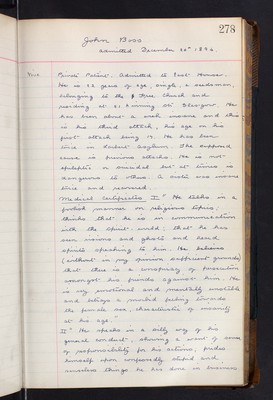 278
John Boss
admitted December 20th 1896.
Private Patient. Admitted to East House.
He is 22 years of age, single, a seedsman,
belonging to the Free Church and
residing at 21 Street Glasgow. He
has been about a week insane and this
is his third attack, his age on his
first attack being 19. He has been
twice in Asylum. The supposed
cause is previous attacks. He is not
epileptic or suicidal but at times is
dangerous to others. A sister was insane
once and recovered.
Medical Certificates I. "He talks in a
foolish manner on religious topics,
thinks that he is in communication
with the spirit world; that he has
seen visions and ghosts and heard
spirits speaking to him. He believes
(without in my opinion sufficient grounds)
that there is a conspiracy of persecution
amongst his friends against him. He
is very emotional and mentally unstable
and betrays a morbid feeling towards
the female sex, characteristic of insanity
at his age."
II. "He speaks in a silly way of his
general conduct, showing a want of sense
of responsibility for his actions, prides
himself upon stupid and
senseless things he has done in